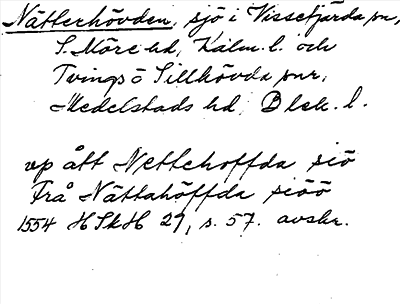 Nätterhövden, sjö i Vissefjärda sn,
S. Möre hd, Kalm. l. och
Tvings o Sillhövda snr,
Medelstads hd, Blek. l.
vp ått Nettehoffda siö
Frå Nättahöffda siöö
1554 HSkH 27, s. 57. avskr.